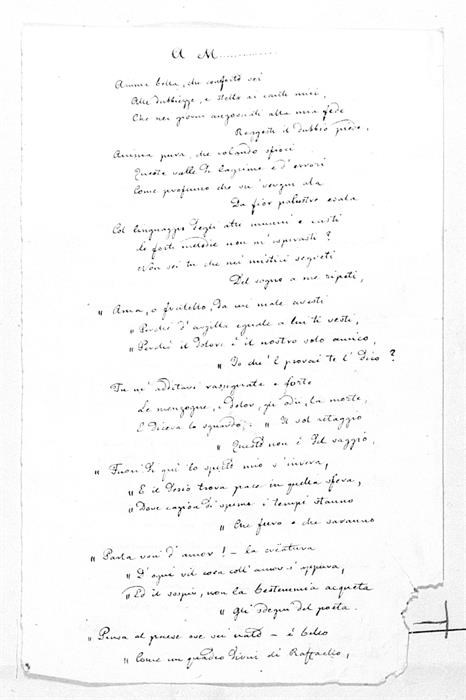 A M..............
Anima bella, che conforto sei
Alle dubbiezze, e stella ai canti miei,
Che nei giorni angosciati alla mia fede
Reggesti il dubbio piede,
Anima pura, che volando sfiori
Questa valle di lagrime e d'errori
Come profumo che su' vergin ala
Da fior palustre esala
Col linguaggio degli astri immuni e casti
le forti melodie non m'ispirasti?
Non sei tu che nei mistici segreti
Del sogno a me ripeti,
" Ama, o fratello, da cui male avesti
" Perchè d'argilla eguale a lui ti vesti,
" Perchè il dolore è il nostro solo amico,
" Io che 'l provai te l' dico?
Tu m'additavi rassegnata e forte
Le menzogne, i dolor, gli odii, la morte,
E diceva lo sguardo: " Il sol retaggio
" Questo non è del saggio,
" Fuori di qui lo spirto mio s'invera,
" E il desio trova pace in quella sfera,
" Dove cagion di speme i tempi stanno
" Che furo e che saranno
" Parla d'amor! – la creatura
" D'ogni vil cosa coll'amor s'appura,
" Ed il sospir, non la bestemmia acqueta
" Gli sdegni del poeta.
" Pensa al paese ove sei nato – è bello
" Come un quadro divin di Raffaello,